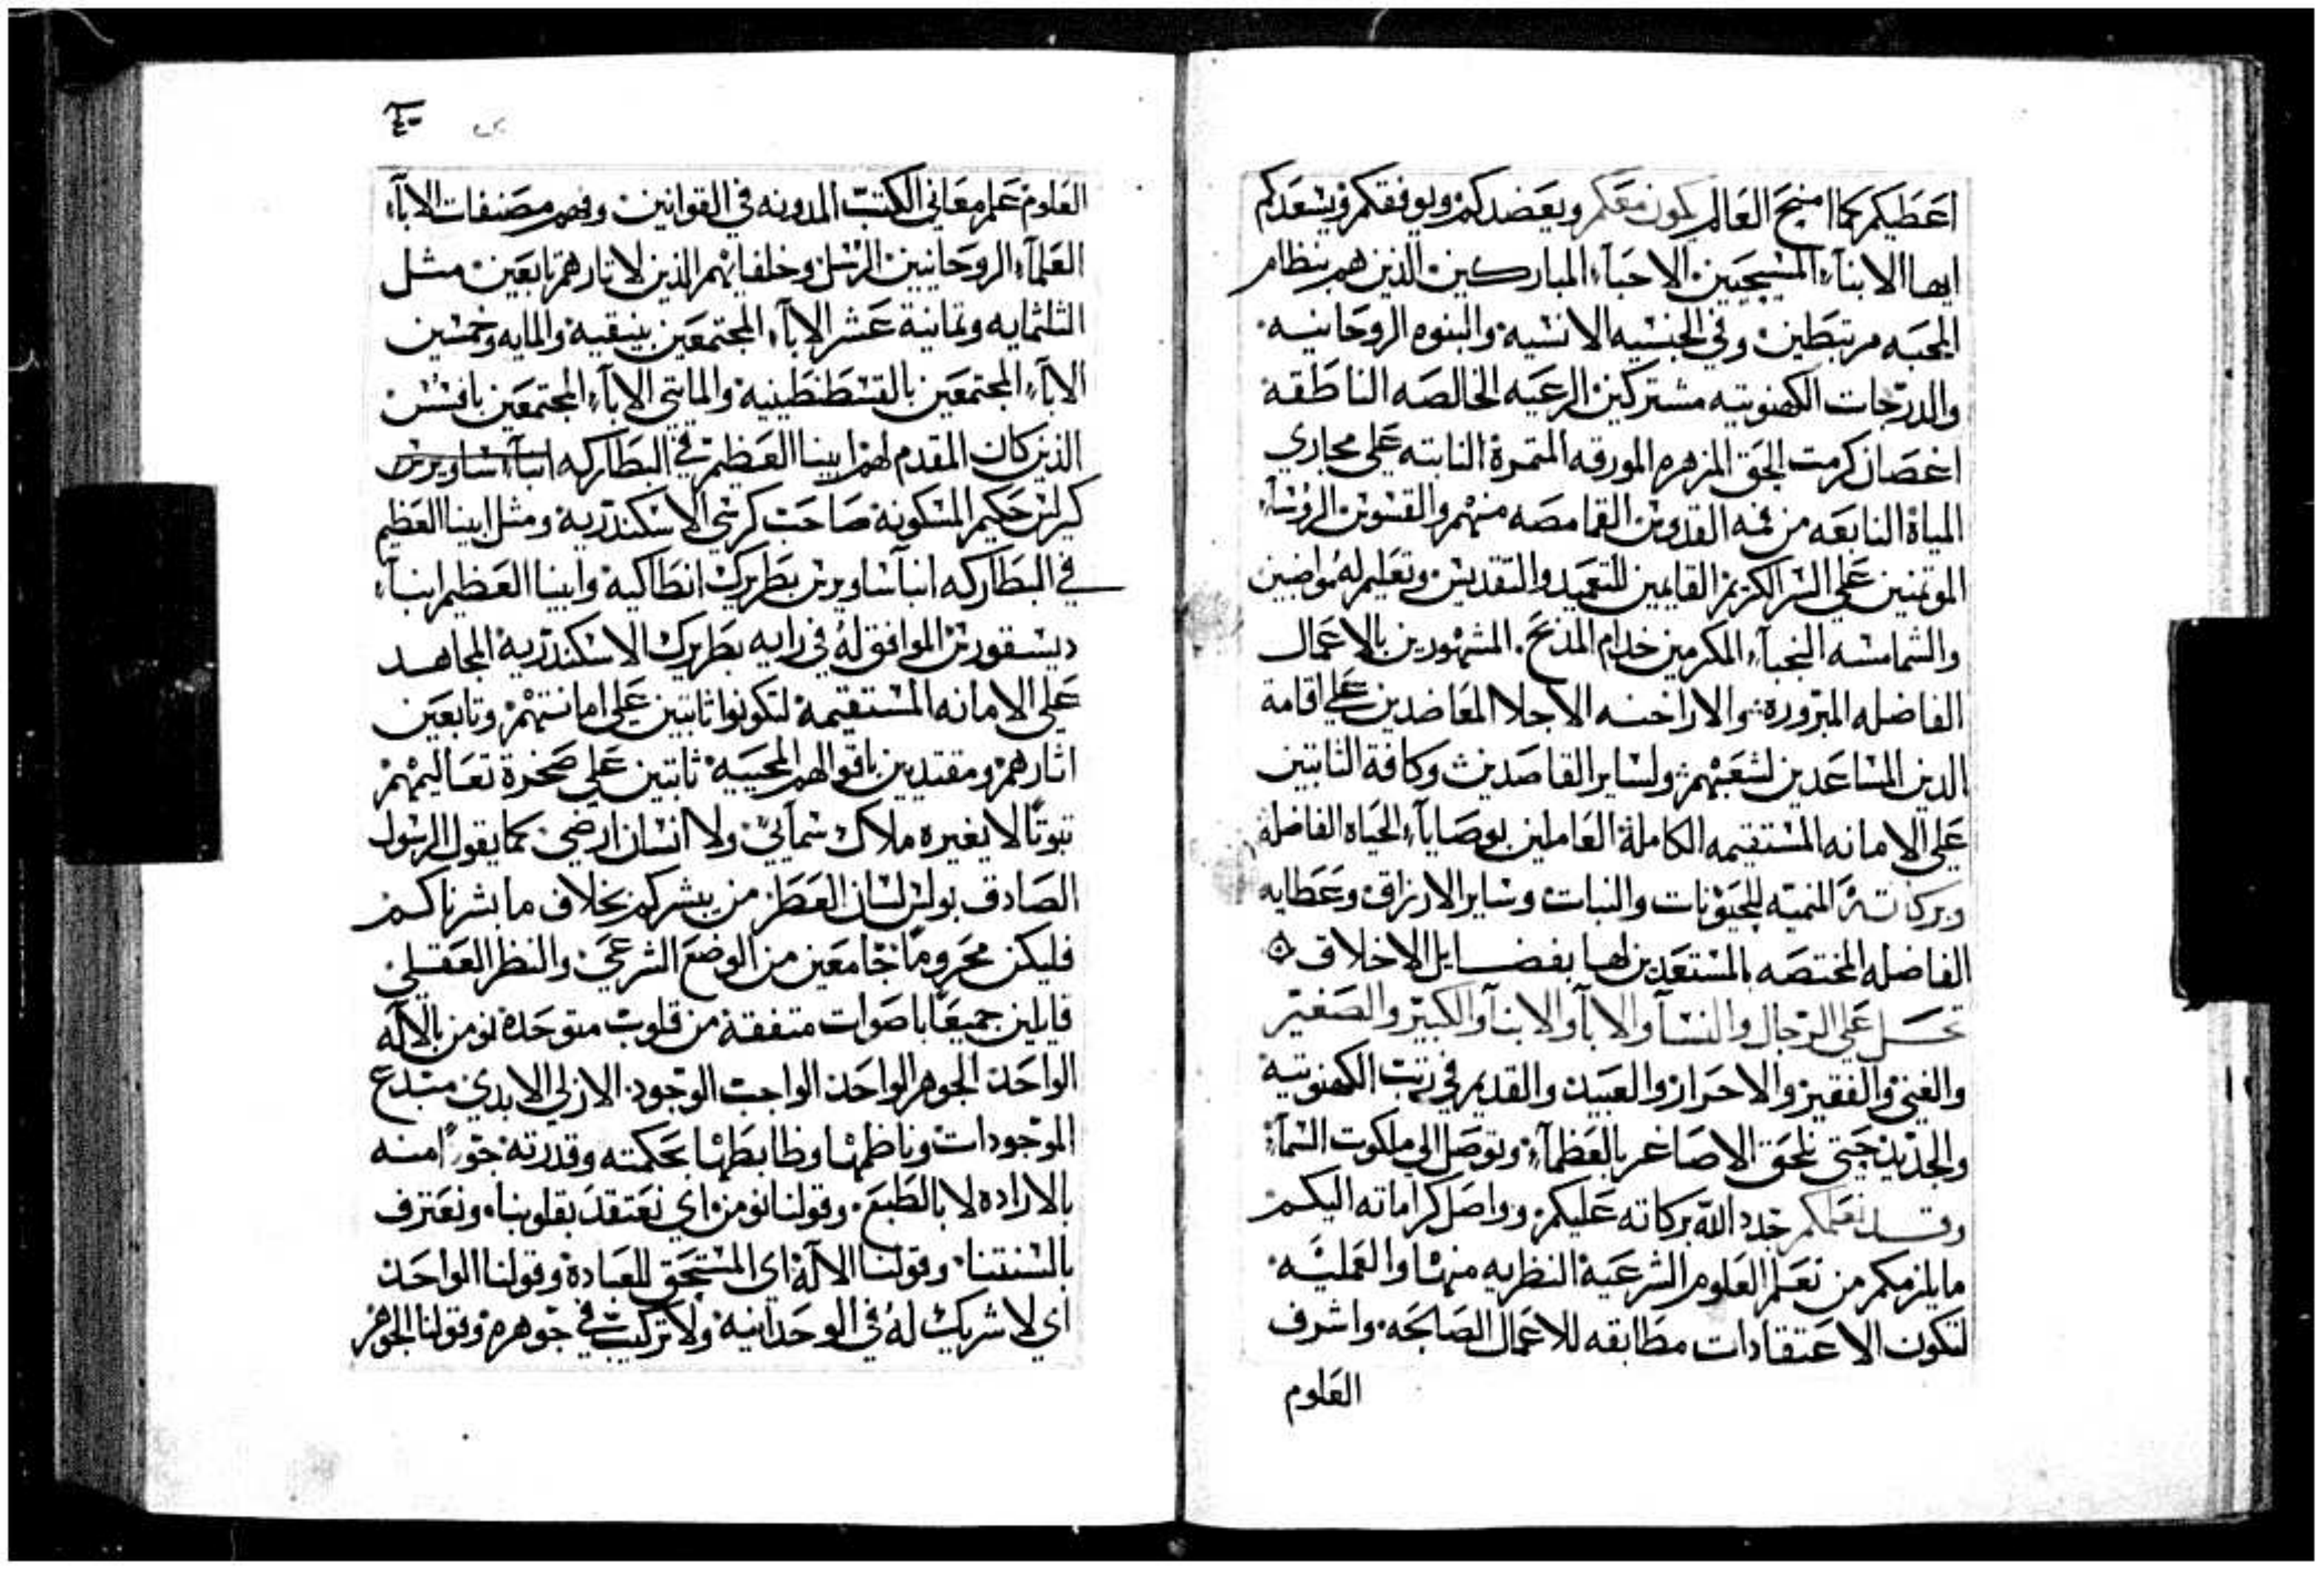 اعطيكم كما امنح العالم يكون معكم ويعضدكم ويوفقكم ويسعدكم
ايها الابنآء المسيحيين الاحبآء المباركين الذين هم بنظام
المحبه مرتبطين وفي الجنسيه الانسيه والبنوه الروحانيه
والدرجات الكهنوتيه مشتركين الرعيه الخالصه الناطقه
اغصان كرمت الحق المزهره المورقه المتمرة النابته علي مجاري
المياة النابعه من فمه القدوس القمامصه منهم والقسوس الروسآء
الموتمنين علي السر الكريم القايمين للتعميد والتقديس وتعليم له مواضبين
والشمامسه النجبآء المكرمين خدام المذبح المشهورين بالاعمال
الفاضله المبروره والاراخنه الاجلا المعاضدين علي اقامة
الدين المساعدين لشعبهم ولساير القاصدين وكافة الثابتين
علي الامانه المستقيمه الكاملة العاملين بوصايآء الحياه الفاضلة
وبركاته المنميه للحيونات والنبات وساير الارزاق وعطايه
الفاضله المختصه بالمستعدين لها بفضايل الاخلاق
تحل علي الرجال والنسآ والابآ والابنآ والكبير والصغير
والغني والفقير والاحرار والعبيد والقديم في رتبت الكهنوتيه
والجديد حتي تلحق الاصاغر بالعظمآء وتوصل الي ملكوت السمآء
وقد نعلمكم جدد الله بركاته عليكم وواصل كراماته اليكم
مايلزمكم من تعلم العلوم الشرعية النظريه منها والعمليه
لتكون الاعتقادات مطابقه للاعمال الصالحه واشرف
العلوم
٤٠
العلوم علم معاني الكتب المدونه في القوانين وفهم مصنفات الابآء
العلمآء الروحانيين الرسل وخلفايهم الذين لاتارهم تابعين مثل
الثلثمايه وتمانية عشر الابآء المجتمعين بنيقية والمايه وخمسين
الابآء المجتمعين بالقسطنطينية والمايتي الابآء المجتمعين بافسس
الذين كان المقدم لهم ابينا العظيم في البطاركه انبآء ساويرس
كيرلس حكيم المسكونة صاحب كرسي الاسكندرية ومثل ابينا العظيم
في البطاركه انبآ ساويرس بطريرك انطاكية وابينا العظيم انبآء
ديسقورس الموافق له في رايه بطريرك الاسكندرية المجاهد
علي الامانه المستقيمة لتكونوا ثابتين علي امانتهم وتابعين
اثارهم ومقتديين باقوالهم المحييه ثابتين علي صخرة تعاليمهم
تبوتًا لا يغيره ملاك سمآئي ولا انسان ارضي كما يقول الرسول
الصادق بولس لسان العطر من يبشركم بخلاف ما بشرناكم
فليكن محرومًا جامعين من الوضع الشرعي والنظر العقلي
قايلين جميعًا باصوات متفقة من قلوب متوحدة نومن بالاله
الواحد الجوهر الواحد الواجب الوجود الازلي الابدي مبتدع
الموجودات وناظمها وظابطها بحكمته وقدرته جورًا منه
بالاراده لا بالطبع وقولنا نومن اي نعتقد بقلوبنا ونعترف
بالسنتنا وقولنا الاله اي المستحق للعبادة وقولنا الواحد
اي لا شريك له في الوحدانيه ولا تركيب في جوهره وقولنا الجوهر